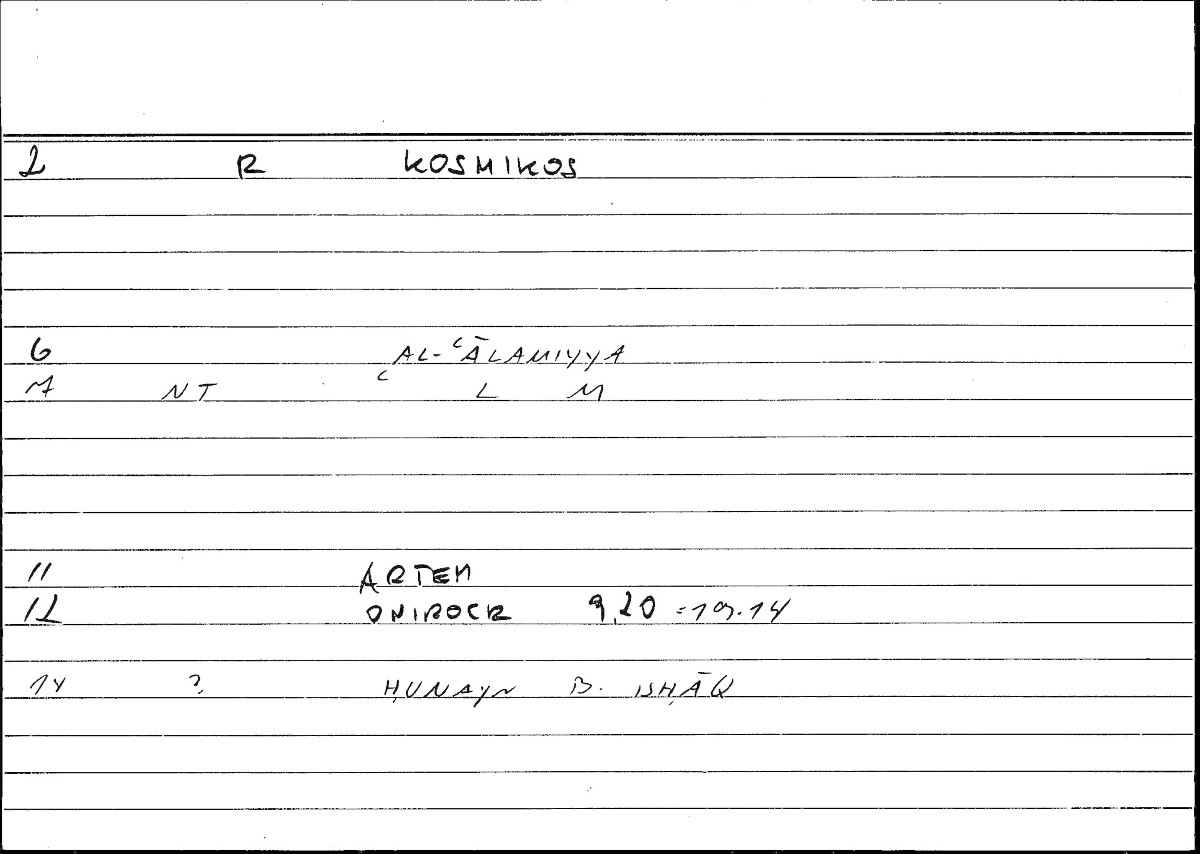 2 R KOSMIKOS
6 AL-ʿĀLAMIYYA
7 NT ʿ L M
11 ARTEM
12 ONIROCR 9,20 = 19.14
14 ? ḤUNAYN B. ISḤĀQ